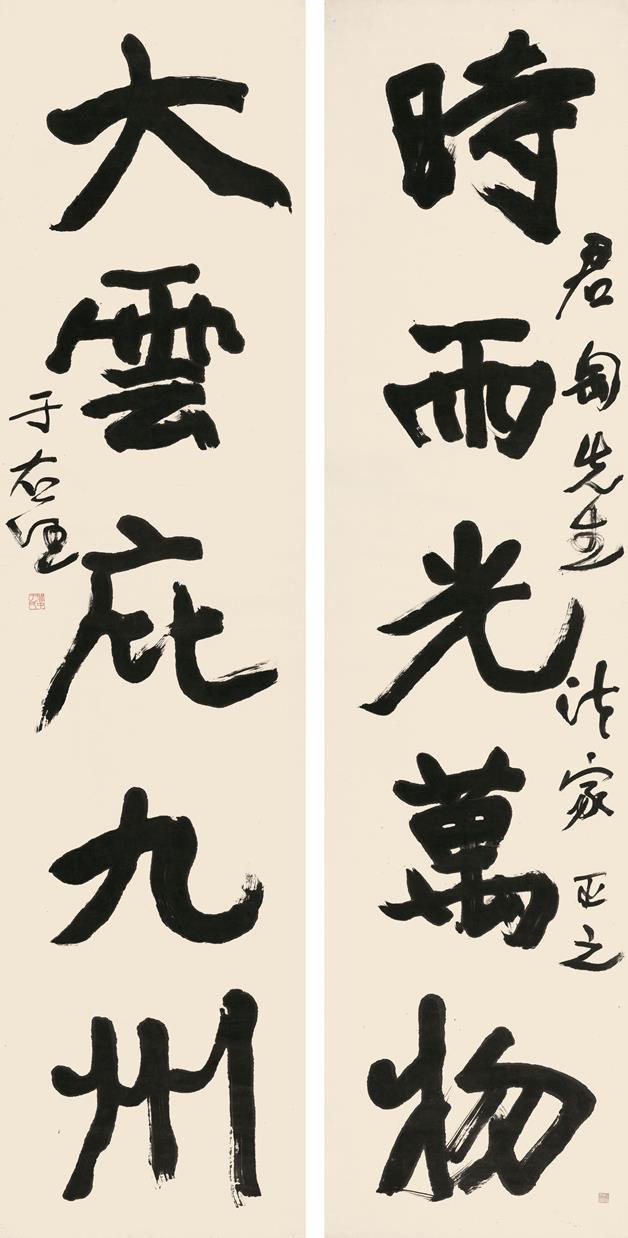 時雨光萬物
君匋先生法家正之
大雲庇九州
于右任